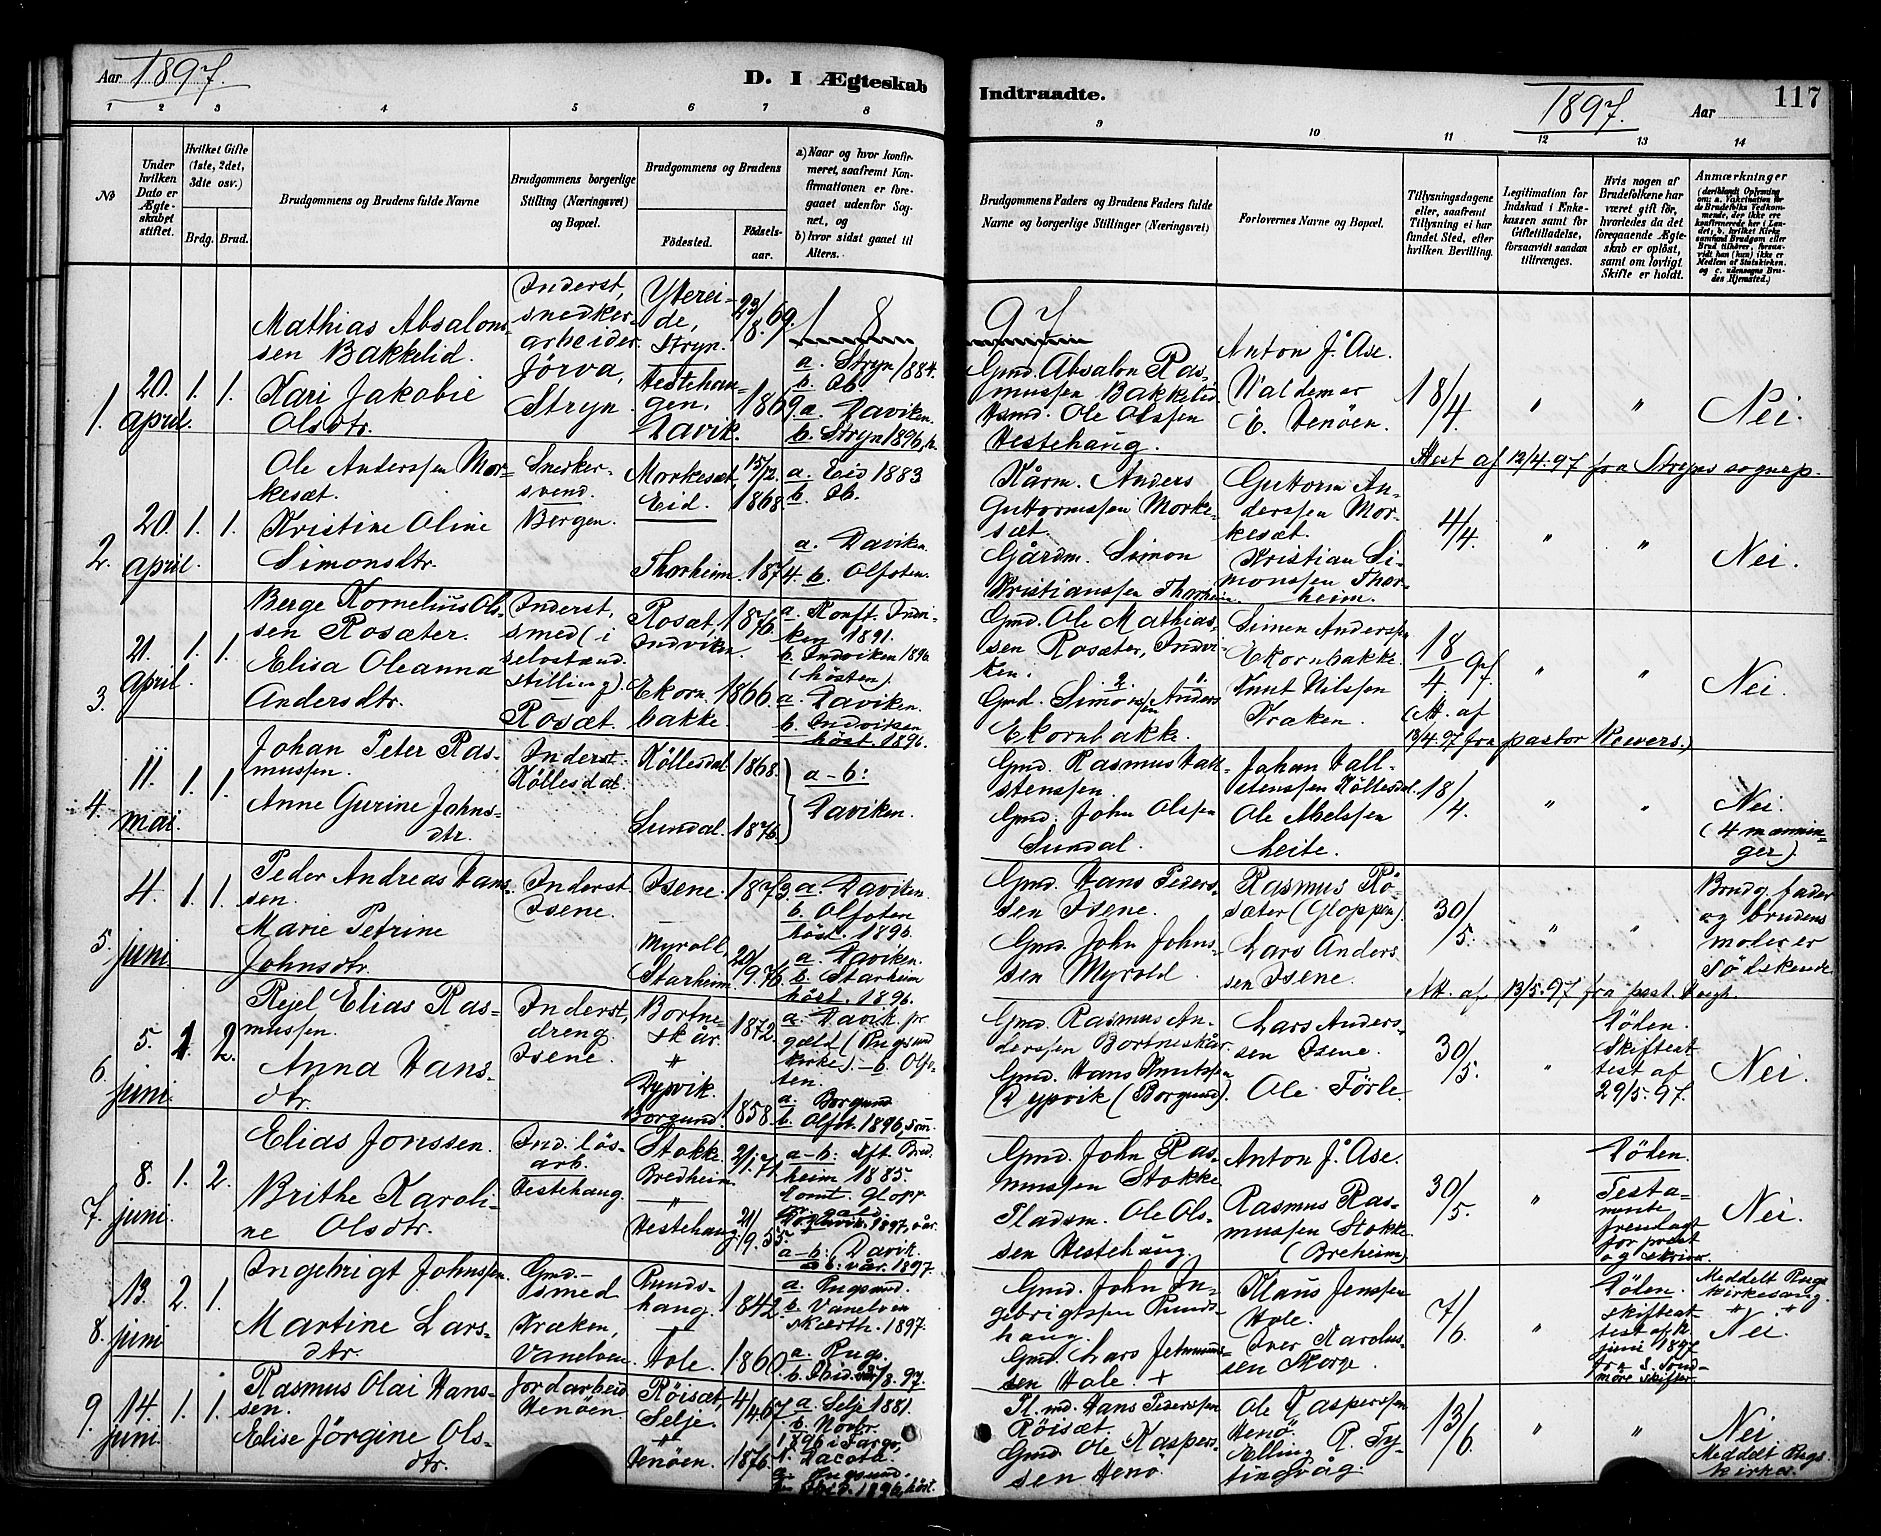 Aar 1897. D. I Ægteskab
Indtraadte. 1897. Aar 117
1 2 3 4 5 6 7 8
9 10 11 12 13 14
No
Under hvilken Dato er Ægteskabet stiftet.
Hvilket Gifte (1ste, 2det, 3die osv.)
Brdg. Brud.
Brudgommens og Brudens fulde Navne
Brudgommens borgerlige Stilling (Næringsvei) og Bopæl.
Brudgommens og Brudens
Fødested. Fødselsaar.
a) Naar og hvor konfirmeret, saafremt Konfirmationen er foregaaet udenfor Sognet, og
b) hvor sidst gaaet til Alters.
Brudgommens Faders og Brudens Faders fulde Navne og borgerlige Stillinger (Næringsvei)
Forlovernes Navne og Bopæl.
Tillysningsdagene eller, saafremt Tillysning ei har fundet Sted, efter hvilken Bevilling.
Legitimation for Indskud i Enkekassen samt for Giftetilladelse, forsaavidt saadan tiltrænges.
Hvis nogen af Brudefolkene har været gift før, hvorledes da det foregaaende Ægteskab er opløst, samt om lovligt Skifte er holdt.
Anmærkninger
18
97
1. 20. april. 1. 1.
Mathias Absalons-
sen Bakkelid.
Kari Jakobie
Olsdtr.
Inderst,
snedker-
arbeider
Jörva,
Stryn.
Yterei-
de,
Stryn.
Hestehau-
gen,
Davik.
23/8. 69.
1869
a. Stryn 1884.
b. Ib.
a. Daviken.
b. Stryn 1896, h.
Gmd. Absalon Ras-
mussen Bakkelid.
Hsmd. Ole Olssen
Hestehaug.
Anton J. Ase.
Valdemar
E. Henöen.
18/4.
" "
Nei.
Attest af 12/4. 97 fra Stryns sognep.
2. 20. april. 1. 1.
Ole Anderssen Mor-
kesæt.
Kristine Oline
Simonsdtr.
Snedker-
svend.
Bergen.
Morkesæt,
Eid.
Thorheim.
15/12. 1868
1874.
a. Eid 1883
b. Ib.
a. Daviken.
b. Olfoten.
Kårm. Anders
Guttormssen Morke-
sæt.
Gårdm. Simon
Kristianssen Thorheim.
Guttorm An-
derssen Mor-
kesæt.
Kristian Si-
monssen Thor-
heim.
4/4.
" "
Nei.
3. 21. april. 1. 1.
Berge Kornelius Ols-
sen Rosæter.
Elisa Oleanna
Andersdtr.
Inderst,
smed (i
selvstænd.
stilling).
Rosæt.
Rosæt,
Indviken.
Ekorn-
bakke.
1876.
1866.
a. Konft. Indvi-
ken 1891.
b. Indviken 1896
(hösten).
a. Daviken.
b. Indviken
höst. 1896.
Gmd. Ole Mathias-
sen Rosæter, Indvi-
ken.
Gmd. Simonssen Anders
Ekornbakke.
Simen Anderssen
Ekornbakke.
Knut Nilssen
Kraken.
18/4. 97.
(Att. af
13/4. 97 fra pastor Kewers.)
" "
Nei.
4. 11. mai. 1. 1.
Johan Peter Ras-
mussen.
Anne Gurine Johns-
dtr.
Inderst.
Köllesdal.
Köllesdal
Sundal.
1868.
1876.
a-b:
Daviken.
Gmd. Rasmus Hall-
stenssen.
Gmd. John Olssen
Sundal.
Johan Hall-
stenssen Köllesdal.
Ole Abelssen
Leite.
18/4.
" "
Nei.
(4 mænnin-
ger).
5. 4. juni 1. 1.
Peder Andreas Hans-
sen.
Marie Petrine
Johnsdtr.
Inderst
Isene.
Isene.
Myrold,
Starheim.
1873.
20/9. 76.
a. Daviken.
b. Olfoten
höst. 1896.
a. Daviken.
b. Starheim
höst. 1896.
Gmd. Hans Peders-
sen Isene.
Gmd. John Johns-
sen Myrold.
Rasmus Rö-
sæter (Gloppen).
Lars Anders-
sen Isene.
30/5.
" "
Brudg. fader
og brudens
moder er
södskende
Att. af 13/5. 97 fra past. Voigh.
6. 5. juni. 1. 2.
Rejel Elias Ras-
mussen.
Anna Hans-
dtr.
Inderst,
dreng
Isene.
Bortne-
skår.
"
Dypvik
Borgund.
1872.
1858.
a. Davik pr.
gæld (Rugsund
kirke). - b. Olfo-
ten.
a. Borgund
b. Olfot. 1896, som.
Gmd. Rasmus An-
derssen Bortneskår.
Gmd. Hans Knutssen
Dypvik (Borgund).
Lars Anders-
sen Isene.
Ole Förle.
30/5.
"
Döden.
Skifteat-
test af
29/5. 97.
Nei.
7. 8. juni. 1. 2.
Elias Jonssen.
Brithe Karoli-
ne Olsdtr.
Ind. lös-
arb.
Hestehaug.
Stokke
Bredheim.
"
Hestehaug.
21/1. 71.
21/9. 55.
a-b: Aft. Bred-
heim 1885.
a-b: Davik.
b: vår. 1897.
Gmd. John Ras-
mussen Stokke
Pladsm. Ole Ols-
sen Hestehaug.
Anton J. Ase.
Rasmus Ras-
mussen Stokke
(Breheim).
30/5.
"
Döden.
Testa-
mente
fremlagt
for prest
og skriver.
Nei.
8. 13. juni 2. 1.
Ingebrigt Johnssen.
Martine Lars-
dtr.
Gmd.-
smed
Kraken,
Vanelven.
Runds-
haug.
Hole.
1842.
1860.
a. Rugsund.
b. Vanelven
skærth. 1897.
a. Rugs.
Gmd. John In-
gebrigtssen Runds-
haug.
Gmd. Lars Jetmunds-
sen Hole. +
Klaus Jenssen
Hole.
Iver Karolus-
sen Skorge.
7/6.
"
Döden.
skifteat-
test af
juni 1897
fra S. Sönd-
möre skifter.
Meddelt Rugs.
kirkesang.
" "
Nei.
9. 14. juni. 1. 1.
Rasmus Olai Hans-
sen.
Elise Jörgine Ols-
dtr.
Jordarbeid.
Henöen.
Röisæt,
Selje.
"
Henöen.
4/4. 67
1876.
a. Selje 1881.
b. Novbr.
1896 i Fargo,
N. Dacota.
a. Rugsund.
b. Ibid. 1896, höst.
Pl. md. Hans Pederssen
Röisæt.
Gmd. Ole Kaspers-
sen Henö.
Ole Kasperssen
Henö.
Elling R. Ty-
tingvåg.
13/6.
" "
Nei
Meddelt Rugs.
kirkes.